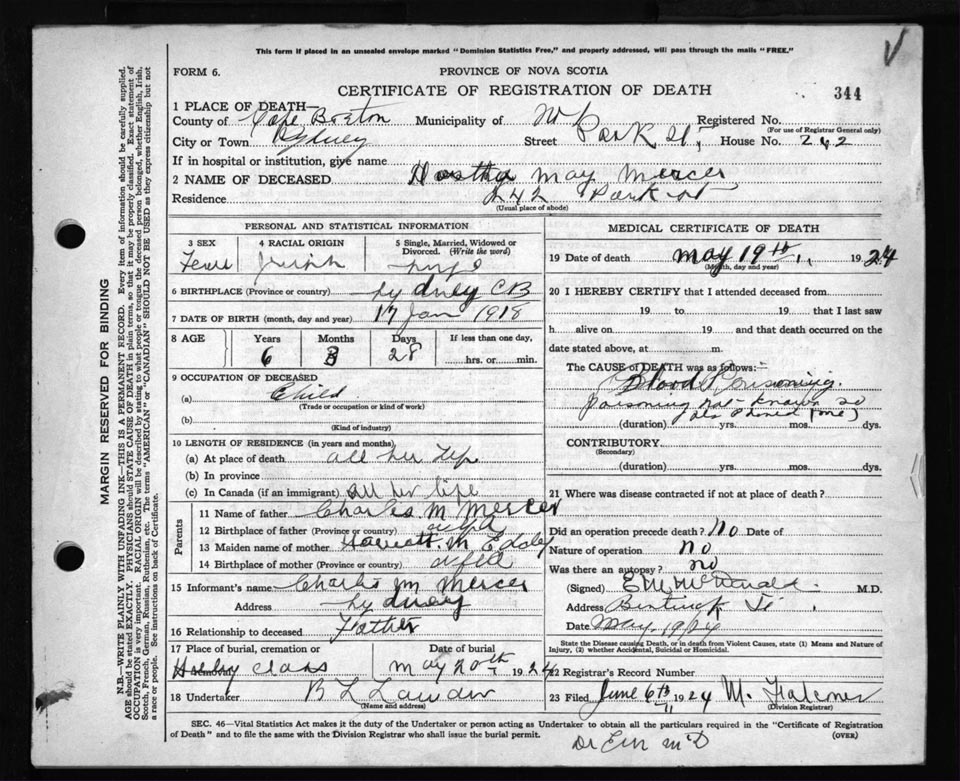 This form if placed in an unsealed envelope marked "Dominion Statistics Free," and properly addressed, will pass through the mails "FREE."
FORM 6.
PROVINCE OF NOVA SCOTIA
CERTIFICATE OF REGISTRATION OF DEATH
344
1 PLACE OF DEATH—
County of Cape Breton Municipality of Registered No.
(For use of Registrar General only)
City or Town Sydney Street Park St, House No. 242
If in hospital or institution, give name
2 NAME OF DECEASED May Mercer
Residence 242 Park St
(Usual place of abode)
PERSONAL AND STATISTICAL INFORMATION
3 SEX 4 RACIAL ORIGIN 5 Single, Married, Widowed or Divorced. (Write the word)
6 BIRTHPLACE (Province or country) Sydney CB
7 DATE OF BIRTH (month, day and year) 17 Jan 1918
8 AGE Years Months Days If less than one day,
6 3 28 hrs. or min.
9 OCCUPATION OF DECEASED
(a) Child
(Trade or occupation or kind of work)
(b)
(Kind of industry)
10 LENGTH OF RESIDENCE (in years and months)
(a) At place of death all her life
(b) In province
(c) In Canada (if an immigrant) all her life
Parents
11 Name of father Charles M Mercer
12 Birthplace of father (Province or country) nfld
13 Maiden name of mother Harriett. M
14 Birthplace of mother (Province or country) nfld
15 Informant's name Charles M Mercer
Address Sydney
16 Relationship to deceased Father
17 Place of burial, cremation or removal Date of burial
May 20th 1924
18 Undertaker B L
(Name and address)
MEDICAL CERTIFICATE OF DEATH
19 Date of death May 19th 1924
(Month, day and year)
20 I HEREBY CERTIFY that I attended deceased from
19 to 19 that I last saw
h alive on 19 and that death occurred on
date stated above, at m.
The CAUSE of DEATH was as follows:
Blood Poisoning.
poisoning not known so
(duration) yrs. mos. dys.
CONTRIBUTORY.
(Secondary)
(duration) yrs. mos. dys.
21 Where was disease contracted if not at place of death?
Did an operation precede death? No Date of
Nature of operation no
Was there an autopsy? no
(Signed) M.D.
Address
Date May. 19/24
State the Disease causing Death, or in death from Violent Causes, state (1) Means and Nature of Injury, (2) whether Accidental, Suicidal or Homicidal.
22 Registrar's Record Number
23 Filed June 6th 1924 M. Falconer
(Division Registrar)
SEC. 46—Vital Statistics Act makes it the duty of the Undertaker or person acting as Undertaker to obtain all the particulars required in the "Certificate of Registration
of Death" and to file the same with the Division Registrar who shall issue the burial permit.
(OVER)
MARGIN RESERVED FOR BINDING
N.B.—WRITE PLAINLY WITH UNFADING INK—THIS IS A PERMANENT RECORD. Every item of information should be carefully supplied.
AGE should be stated EXACTLY. PHYSICIANS should STATE CAUSE OF DEATH in plain terms, so that it may be properly classified. Exact statement of
OCCUPATION is very important. RACIAL ORIGIN will be described by stating to what people or tongue the deceased person belonged, whether English, Irish,
Scotch, French, German, Russian, Ruthenian, etc. The terms "AMERICAN" or "CANADIAN" SHOULD NOT BE USED as they express citizenship but not
a race or people. See instructions on back of Certificate.